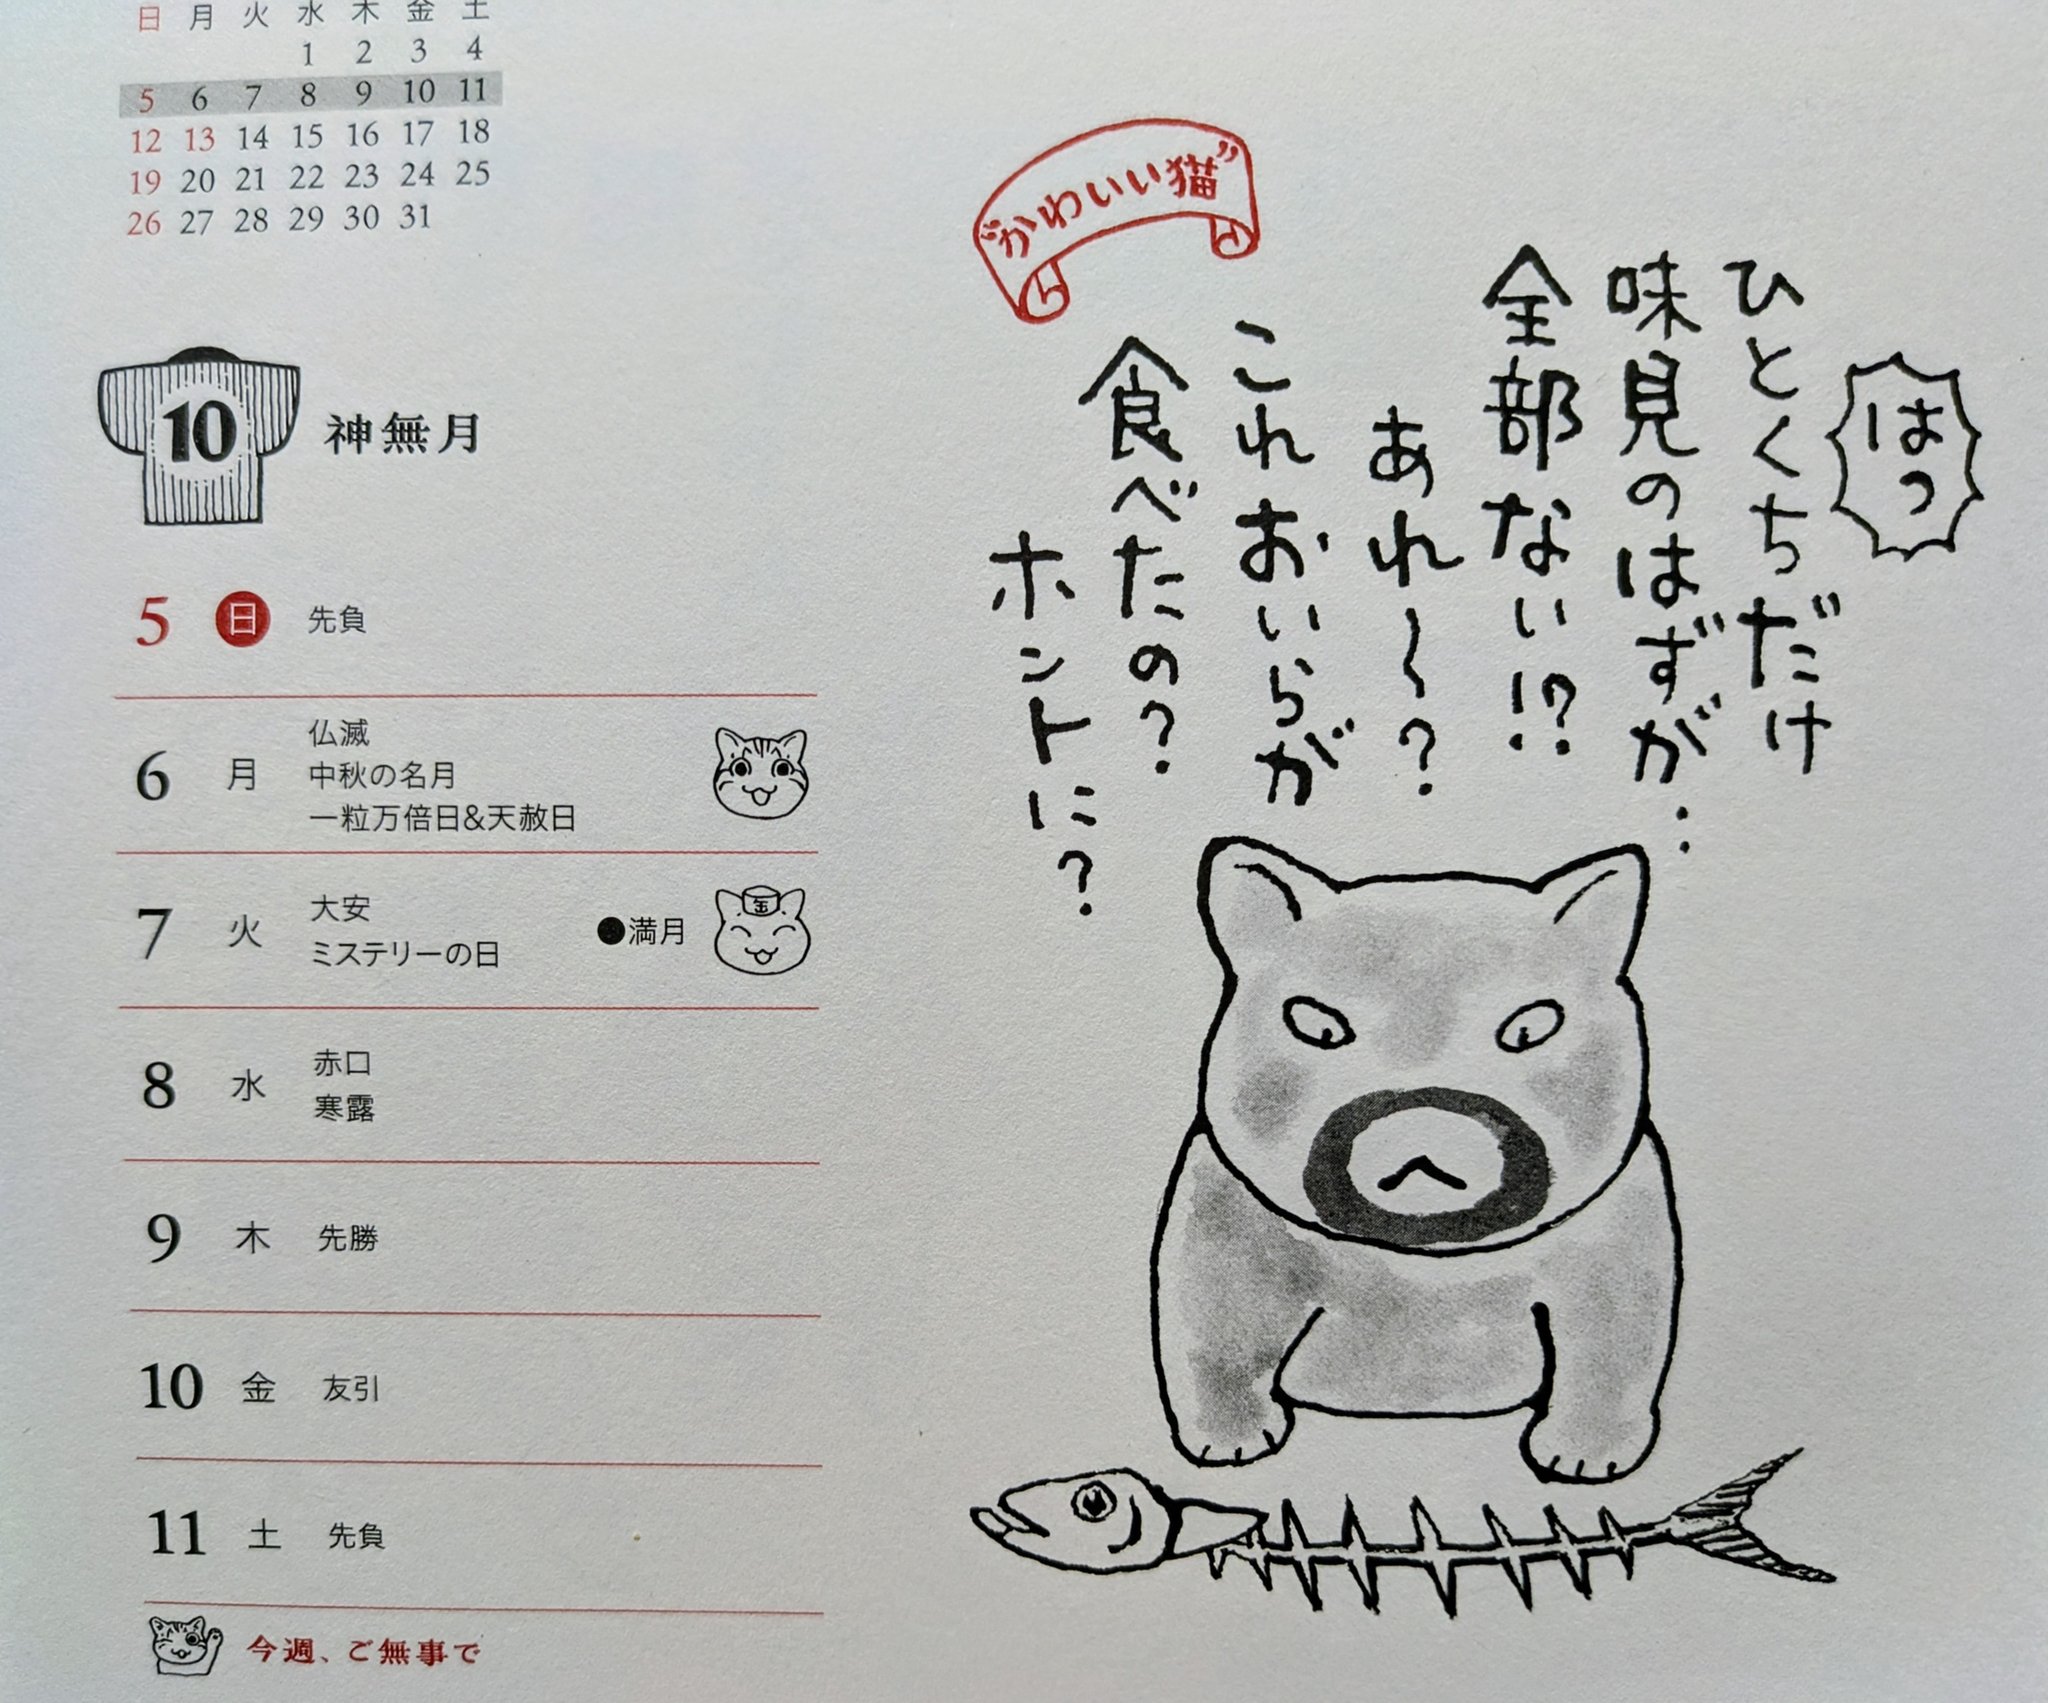 日 月 火 水 木 金 土
1 2 3 4
5 6 7 8 9 10 11
12 13 14 15 16 17 18
19 20 21 22 23 24 25
26 27 28 29 30 31
10 神無月
5 日 先負
6 月 仏滅
中秋の名月
一粒万倍日&天赦日
7 火 大安
ミステリーの日 ●満月
金
8 水 赤口
寒露
9 木 先勝
10 金 友引
11 土 先負
今週、ご無事で
"かわいい猫"
はっ
ひとくちだけ
味見のはずが‥
全部ない!?
あれ〜?
これおいらが
食べたの?
ホントに?